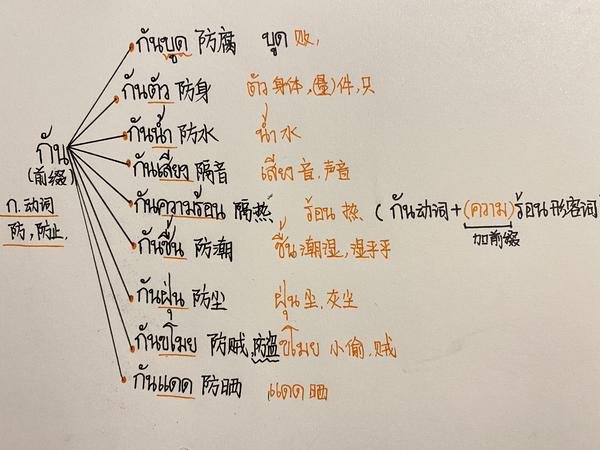 กันบูด 防腐 บูด 败,
กันตัว 防身 ตัว 身体,(量)件,只
กันน้ำ 防水 น้ำ 水
กัน
(前缀)
กันเสียง 隔音 เสียง 音,声音
ก.动词
防,防止,
กันความร้อน 隔热 ร้อน 热 (กัน动词+(ความ)ร้อน形容词
加前缀
กันชื้น 防潮 ชื้น 潮湿,湿乎乎
กันฝุ่น 防尘 ฝุ่น 尘,灰尘
กันขโมย 防贼,防盗 ขโมย 小偷,贼
กันแดด 防晒 แดด 晒